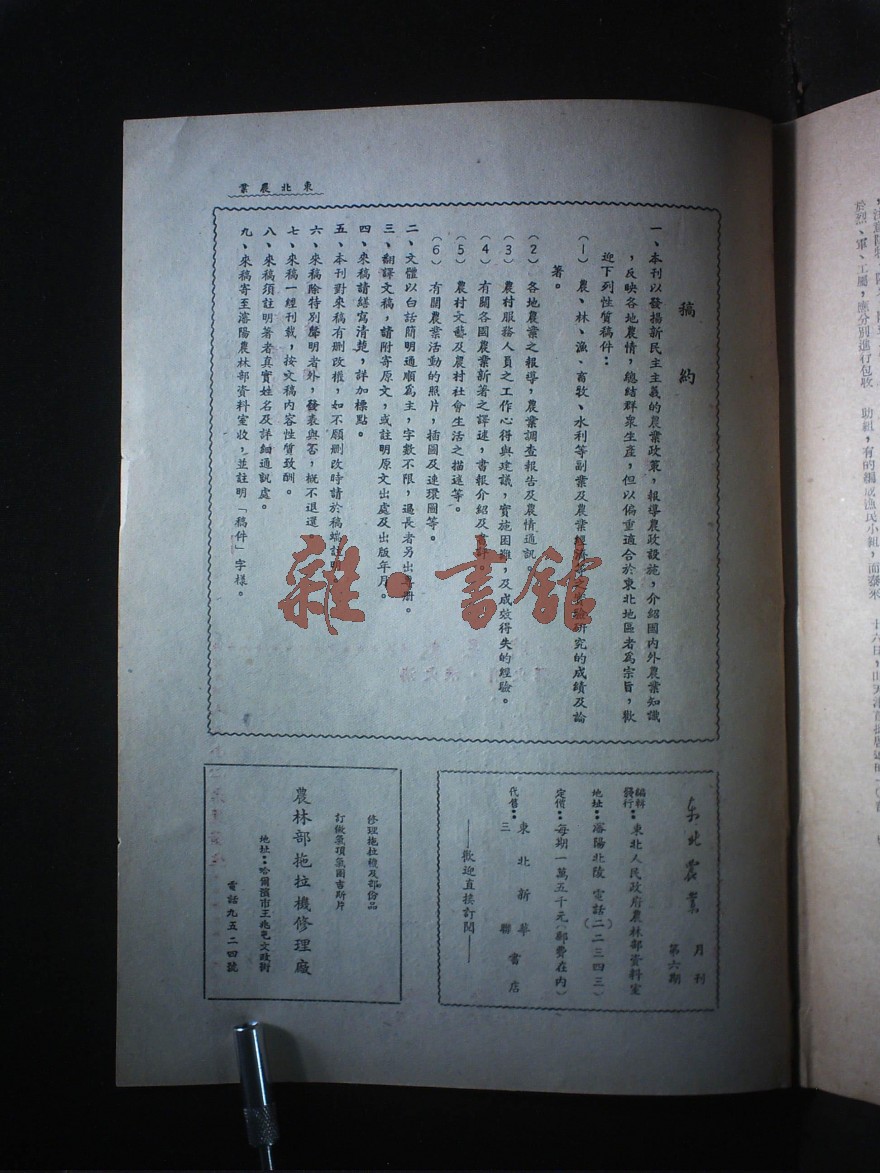 東北農業
稿約
一、本刊以發揚新民主主義的農業政策，報導農政設施，介紹國內外農業知識
，反映各地農情，總結群眾生產，但以偏重適合於東北地區者為宗旨，歡
迎下列性質稿件：
(1) 農、林、漁、畜牧、水利等副業及農業經濟等之實驗研究的成績及論
著。
(2) 各地農業之報導，農業調查報告及農情通訊。
(3) 農村服務人員之工作心得與建議，實施困難，及成效得失的經驗。
(4) 有關各國農業新著之譯述，書報介紹及書評。
(5) 農村文藝及農村社會生活之描述等。
(6) 有關農業活動的照片，插圖及連環圖等。
二、文體以白話簡明通順為主，字數不限，過長者另出專冊。
三、翻譯文稿，請附寄原文，或註明原文出處及出版年月。
四、來稿請繕寫清楚，詳加標點。
五、本刊對來稿有刪改權，如不願刪改時請於稿端註明
六、來稿除特別聲明者外，發表與否，概不退還
七、來稿一經刊載，按文稿內容性質致酬。
八、來稿須註明著者真實姓名及詳細通訊處。
九、來稿寄至瀋陽農林部資料室收，並註明「稿件」字樣。
東北農業 月刊
第六期
編輯
發行：東北人民政府農林部資料室
地址：瀋陽北陵 電話(二二三四三)
定價：每期一萬五千元(郵費在內)
代售：東北新華書店
三聯
——歡迎直接訂閱——
修理拖拉機及部份品
訂做氣項氣圈吉斯片
農林部拖拉機修理廠
地址：哈爾濱市王兆屯文政街
電話九五二四號
於烈、軍、工屬，應分別進行包收
助組，有的編成漁民小組，而泰來
雜·書館